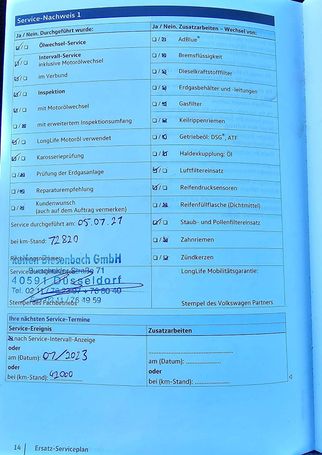 Service-Nachweis 1
Ja / Nein. Durchgeführt wurde:
Ölwechsel-Service
Intervall-Service
inklusive Motorölwechsel
im Verbund
Inspektion
mit Motorölwechsel
mit erweitertem Inspektionsumfang
LongLife Motoröl verwendet
Karosserieprüfung
Prüfung der Erdgasanlage
Reparaturempfehlung
Kundenwunsch
(auch auf dem Auftrag vermerken)
Service durchgeführt am: 05.07.21
bei km-Stand: 12820
GmbH
Straße 71
40591 Düsseldorf
Tel.
Stempel des Fachbetriebs
76 49 59
Ja / Nein. Zusatzarbeiten – Wechsel von:
AdBlue®
Bremsflüssigkeit
Dieselkraftstofffilter
Erdgasbehälter und -leitungen
Gasfilter
Keilrippenriemen
Getriebeöl: DSG®, ATF
Haldexkupplung: Öl
Luftfiltereinsatz
Reifendrucksensoren
Reifenfüllflasche (Dichtmittel)
Staub- und Pollenfiltereinsatz
Zahnriemen
Zündkerzen
LongLife Mobilitätsgarantie:
Stempel des Volkswagen Partners
Ihre nächsten Service-Termine
Service-Ereignis
nach Service-Intervall-Anzeige
oder
am (Datum): 07/2023
oder
bei (km-Stand): 42000
Zusatzarbeiten
am (Datum):
oder
bei (km-Stand):
14 Ersatz-Serviceplan